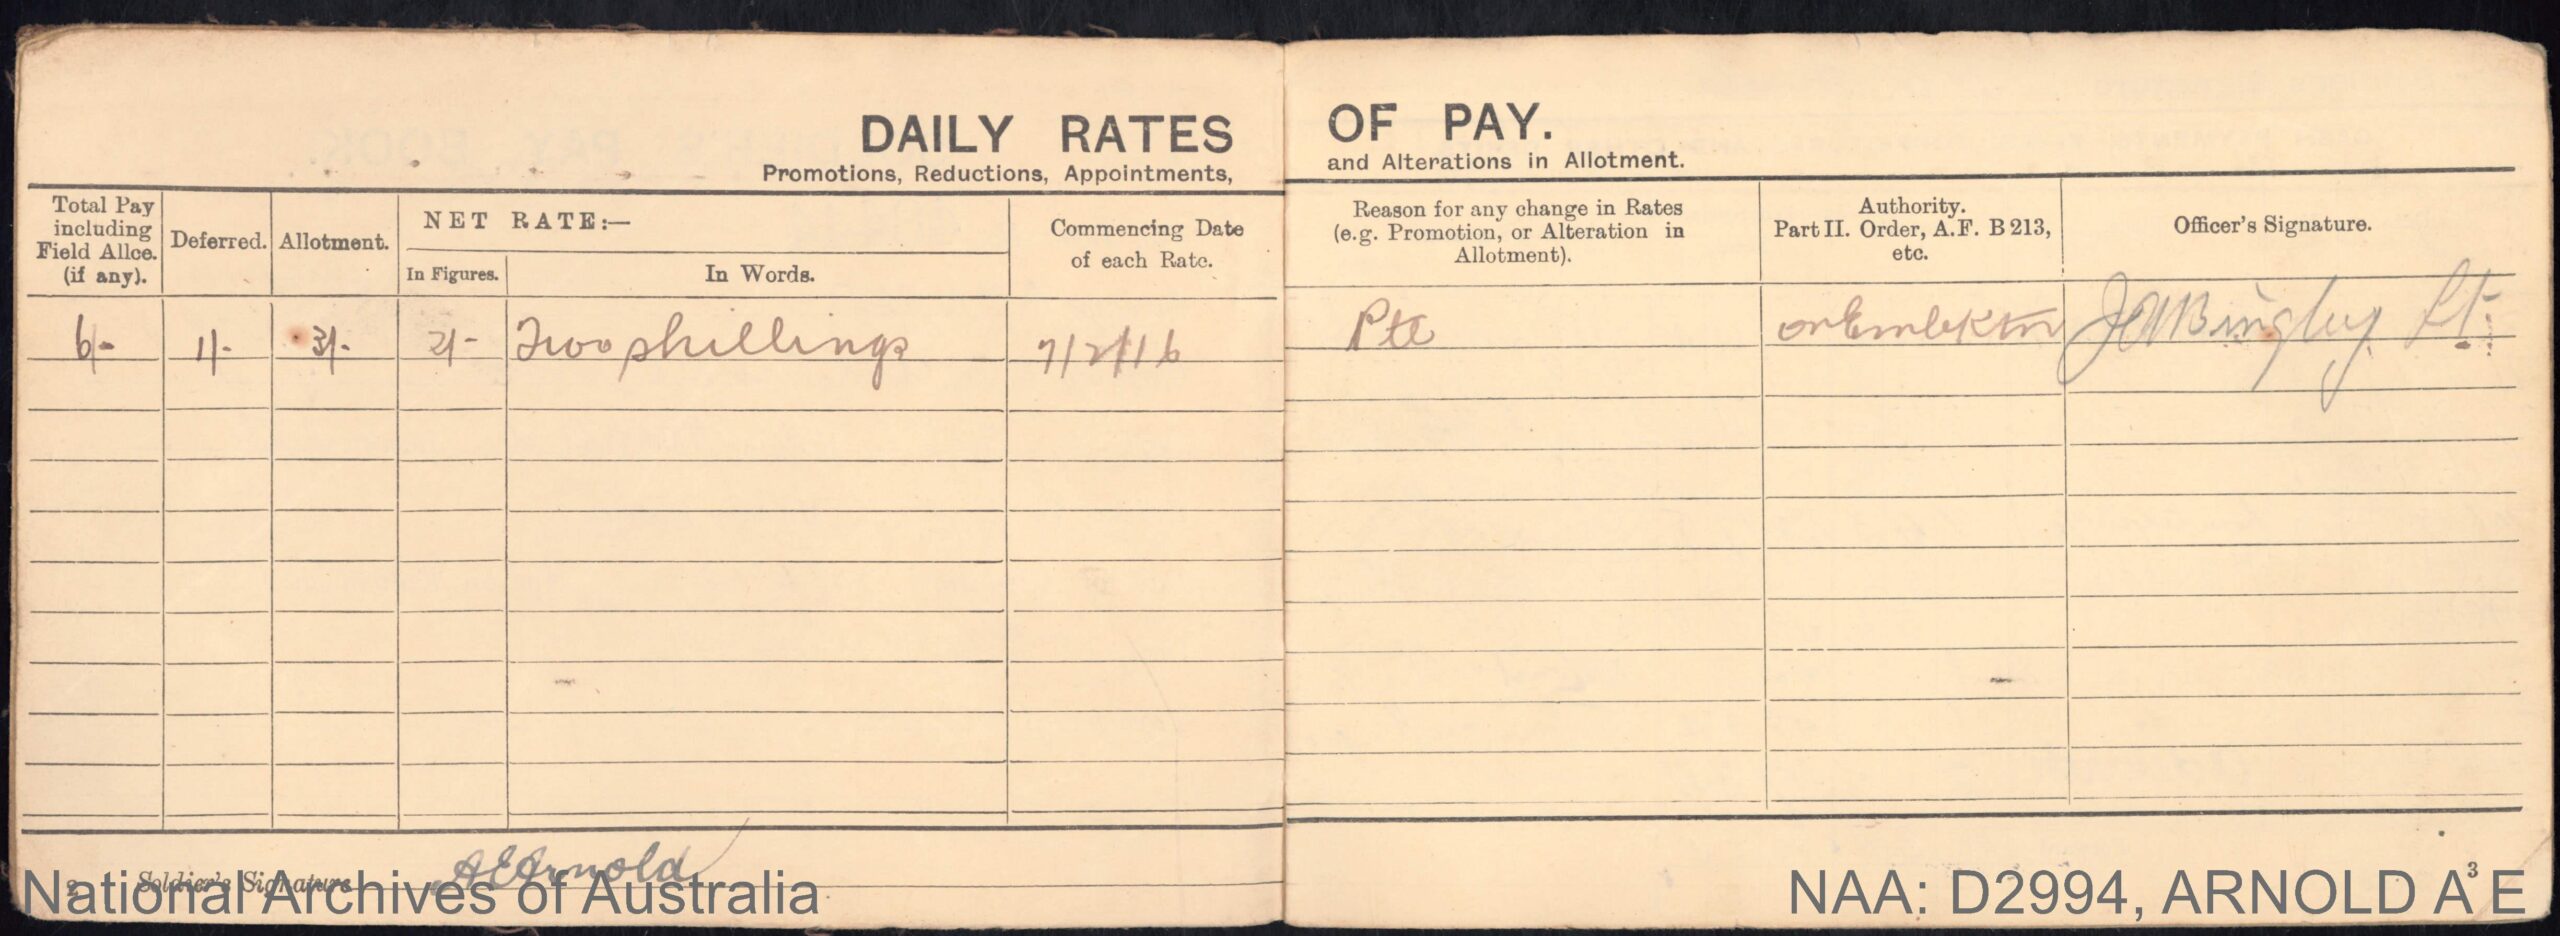 DAILY RATES OF PAY.
Promotions, Reductions, Appointments, and Alterations in Allotment.
Total Pay including Field Allce. (if any).
Deferred.
Allotment.
NET RATE:—
In Figures.
In Words.
Commencing Date of each Rate.
Reason for any change in Rates (e.g. Promotion, or Alteration in Allotment).
Authority. Part II. Order, A.F. B 213, etc.
Officer's Signature.
6/- 1/- 3/- 2/- Two shillings 7/2/16 Pte on Embktn Bingley Lt.
2 Soldier's Signature A E Arnold
3
National Archives of Australia
NAA: D2994, ARNOLD A E